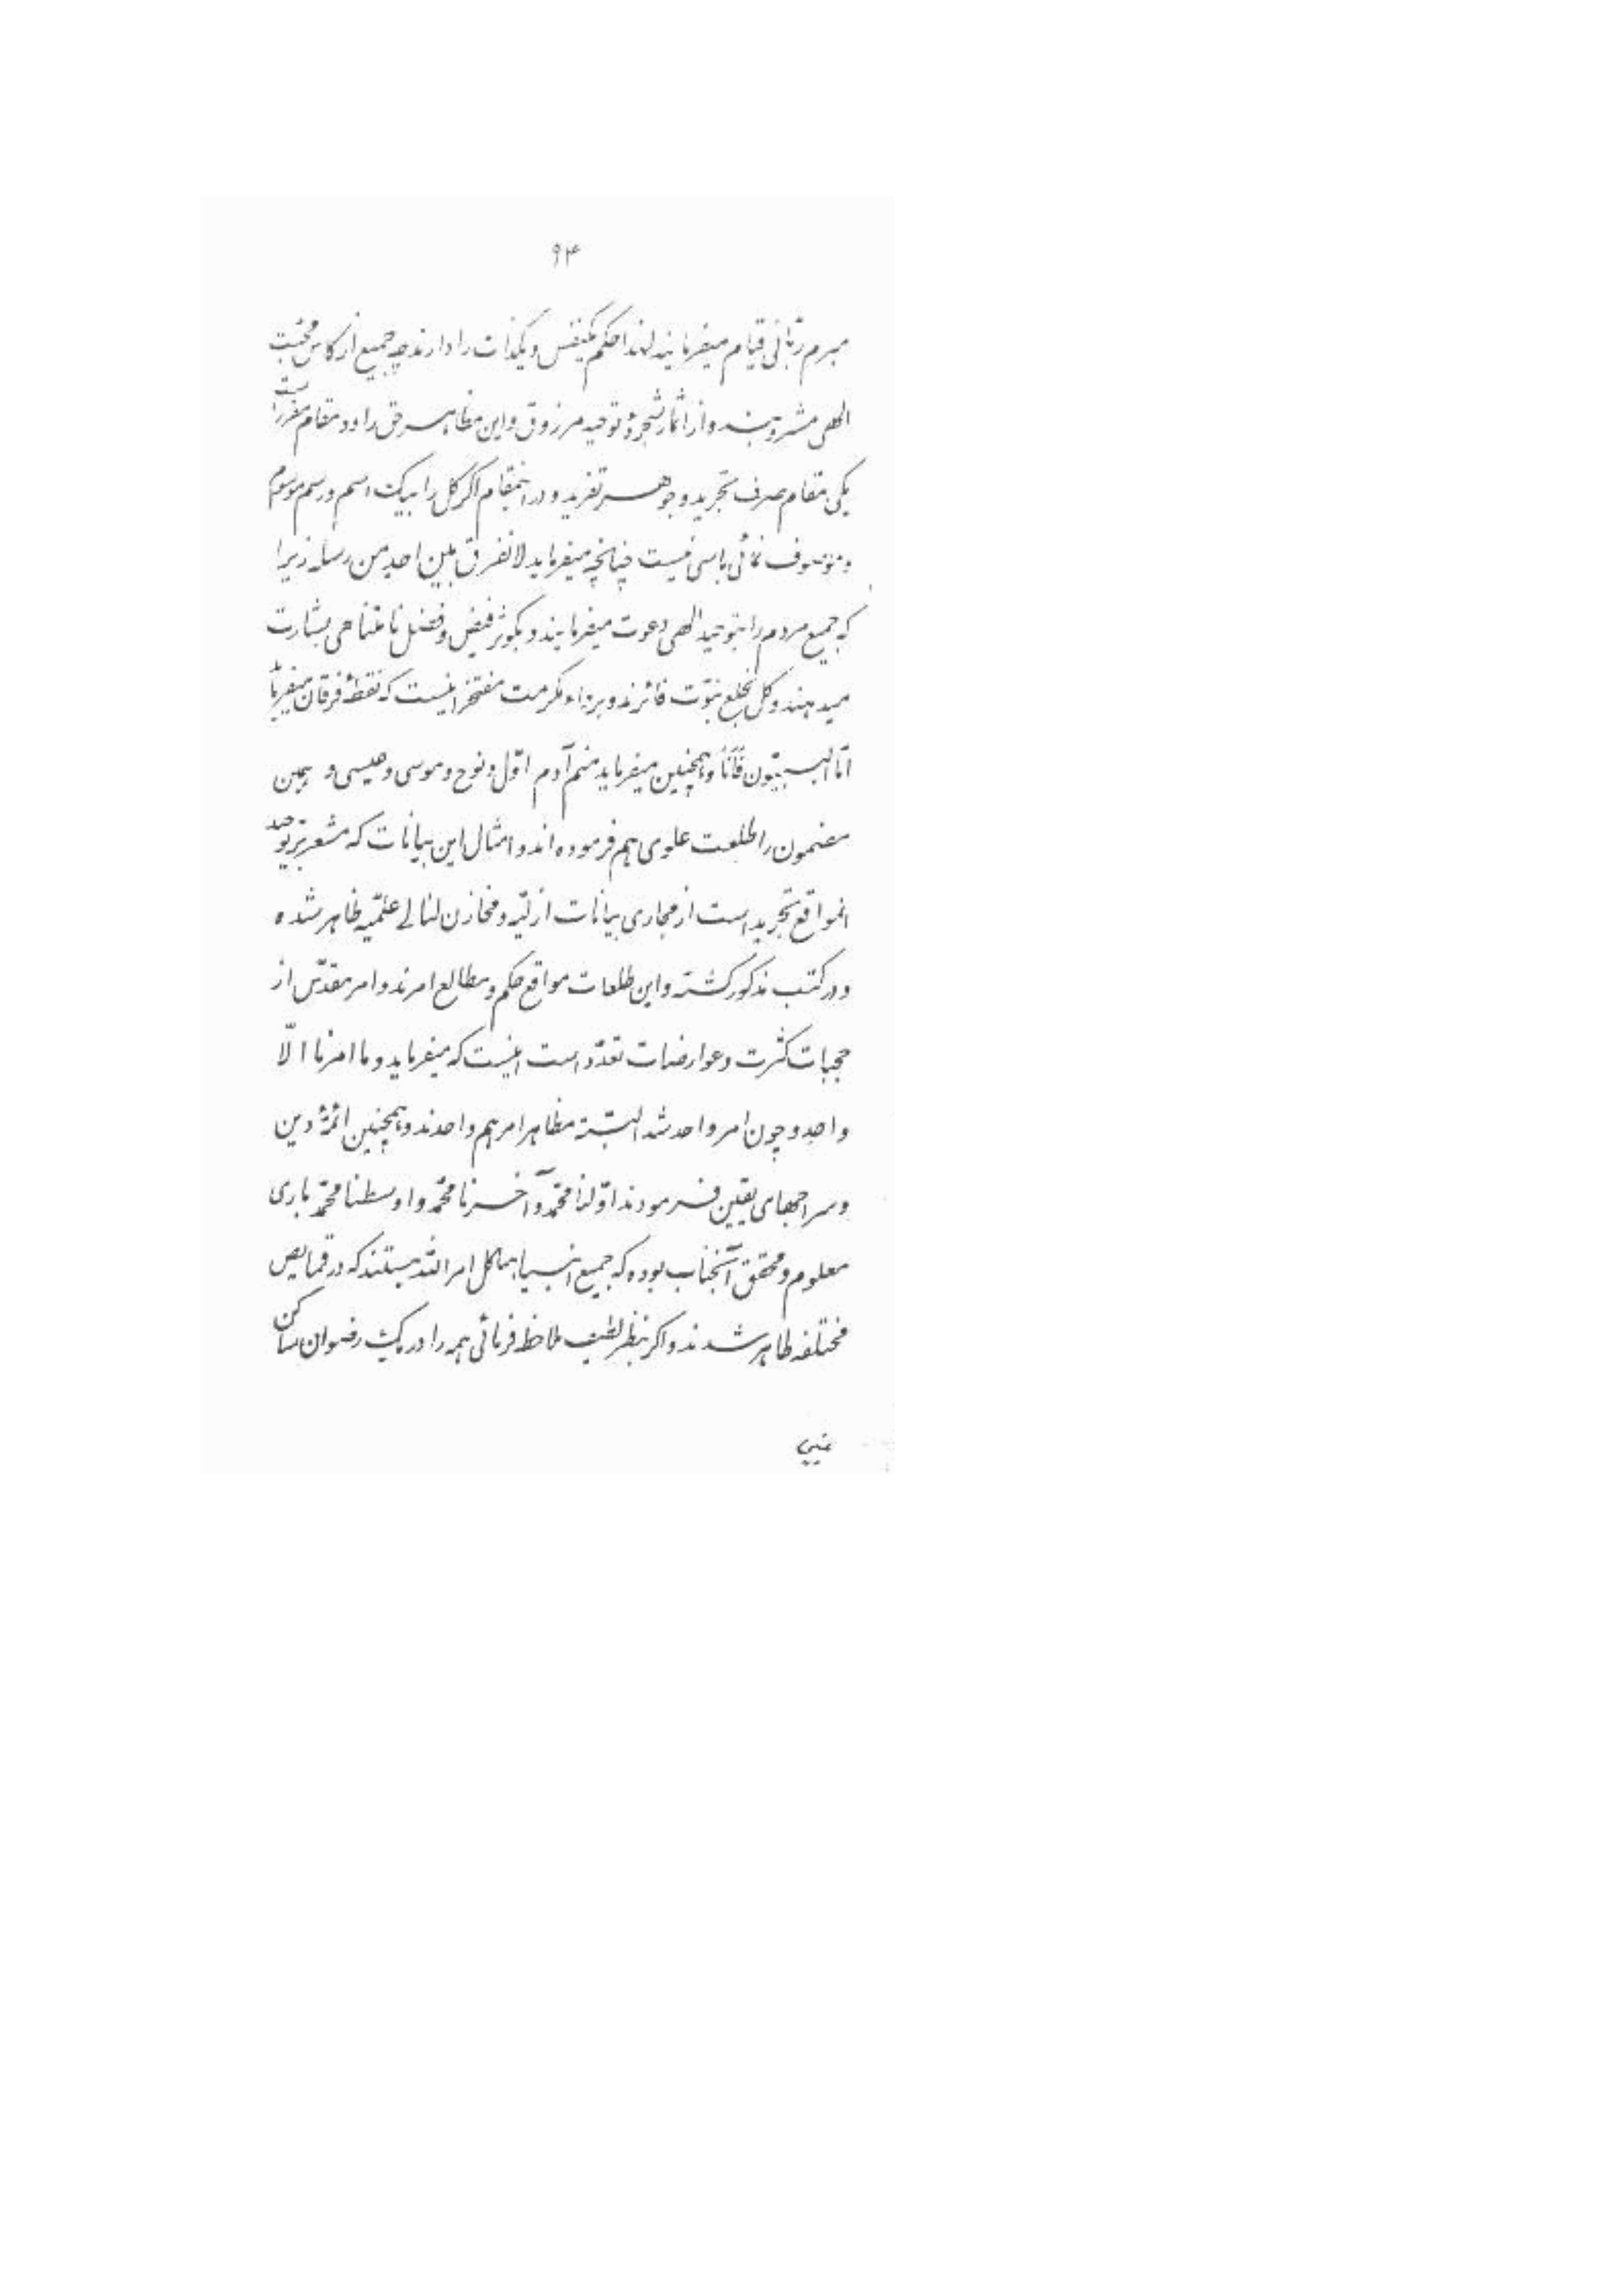 ۹۴
مبرم ربّانی قیام میفرمایند لهذا حکم یکنفس و یکذات را دارند چه جمیع از کاس محبّت
الهی مشروبند و از اثمار شجرهٔ توحید مرزوق و این مظاهر حق را دو مقام مقرّر است
یکی مقام صرف تجرید و جوهر تفرید و در اینمقام اکر کل را بیک اسم و رسم موسوم
و موصوف نمائی باسی نیست چنانچه میفرماید لا نفرق بین احد من رسله زیرا
که جمیع مردم را بتوحید الهی دعوت میفرمایند و بکوثر فیض و فضل نامتناهی بشارت
میدهند و کل بخلع نبوّت فائزند و برداء مکرمت مفتخر اینست که نقطهٔ فرقان میفرماید
امّا النّبیّون فأنا و همچنین میفرماید منم آدم اوّل و نوح و موسی و عیسی و همین
مضمون را طلعت علوی هم فرموده اند و امثال این بیانات که مشعر بر توحید
انمواقع تجرید است از مجاری بیانات ازلیّه و مخازن لئالی علمیّه ظاهر شده
و در کتب مذکور کشته و این طلعات مواقع حکم و مطالع امرند و امر مقدّس از
حجبات کثرت و عوارضات تعدّد است اینست که میفرماید و ما امرنا الّا
واحد و چون امر واحد شد البتّه مظاهر امر هم واحدند و همچنین ائمّهٔ دین
و سراجهای یقین فرمودند اوّلنا محمّد و آخرنا محمّد و اوسطنا محمّد باری
معلوم و محقّق آنجناب بوده که جمیع انبیا هیاکل امر الله هستند که در قمایص
مختلفه ظاهر شدند و اکر بنظر لطیف ملاحظه فرمائی همه را در یک رضوان ساکن
بینی